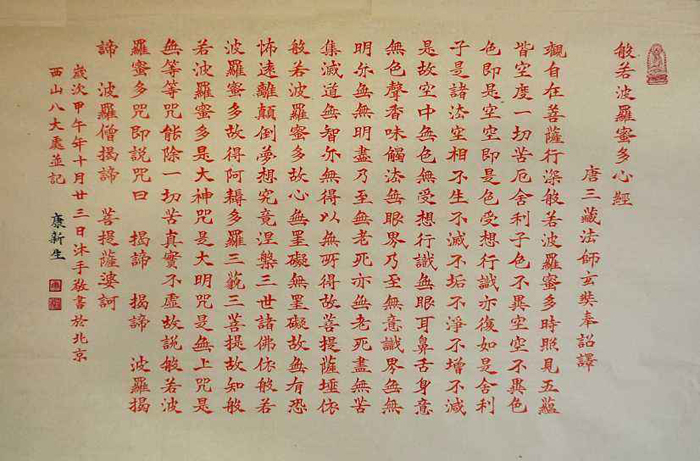 般若波羅蜜多心經
唐三藏法師玄奘奉詔譯
觀自在菩薩行深般若波羅蜜多時照見五蘊
皆空度一切苦厄舍利子色不異空空不異色
色即是空空即是色受想行識亦復如是舍利
子是諸法空相不生不滅不垢不淨不增不減
是故空中無色無受想行識無眼耳鼻舌身意
無色聲香味觸法無眼界乃至無意識界無無
明亦無無明盡乃至無老死亦無老死盡無苦
集滅道無智亦無得以無所得故菩提薩埵依
般若波羅蜜多故心無罣礙無罣礙故無有恐
怖遠離顛倒夢想究竟涅槃三世諸佛依般若
波羅蜜多故得阿耨多羅三藐三菩提故知般
若波羅蜜多是大神咒是大明咒是無上咒是
無等等咒能除一切苦真實不虛故說般若波
羅蜜多咒即說咒曰 揭諦 揭諦 波羅揭
諦 波羅僧揭諦 菩提薩婆訶
歲次甲午年十月廿三日沐手敬書於北京
西山八大處並記 康新生